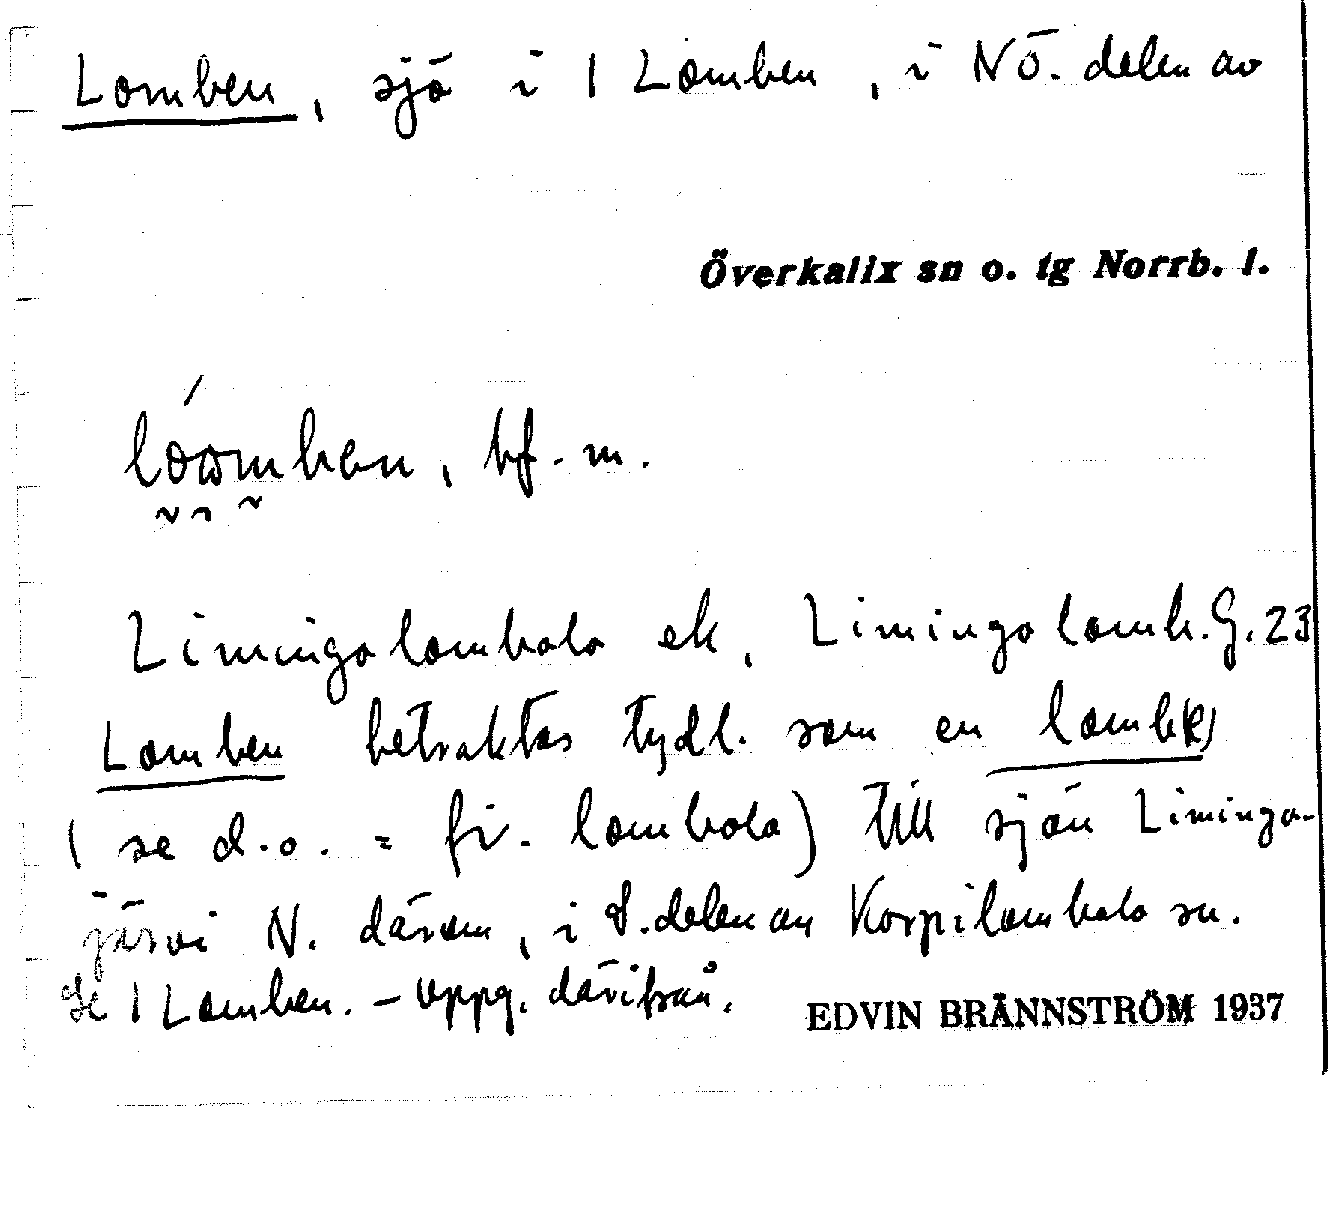 Lomben, sjö i 1 Lomben, i NÖ. delen av
Överkalix sn o. tg Norrb. l.
bf. m.
Limingolombolo ek, Limingolomb. G. 23
Lomben betraktas tydl. som en lomb(e)
(se d.o. = fi. lombolo) till sjön Liminga-
järvi N. därom, i S. delen av Korpilombolo sn.
Se 1 Lomben. – Uppg. därifrån.
EDVIN BRÄNNSTRÖM 1937